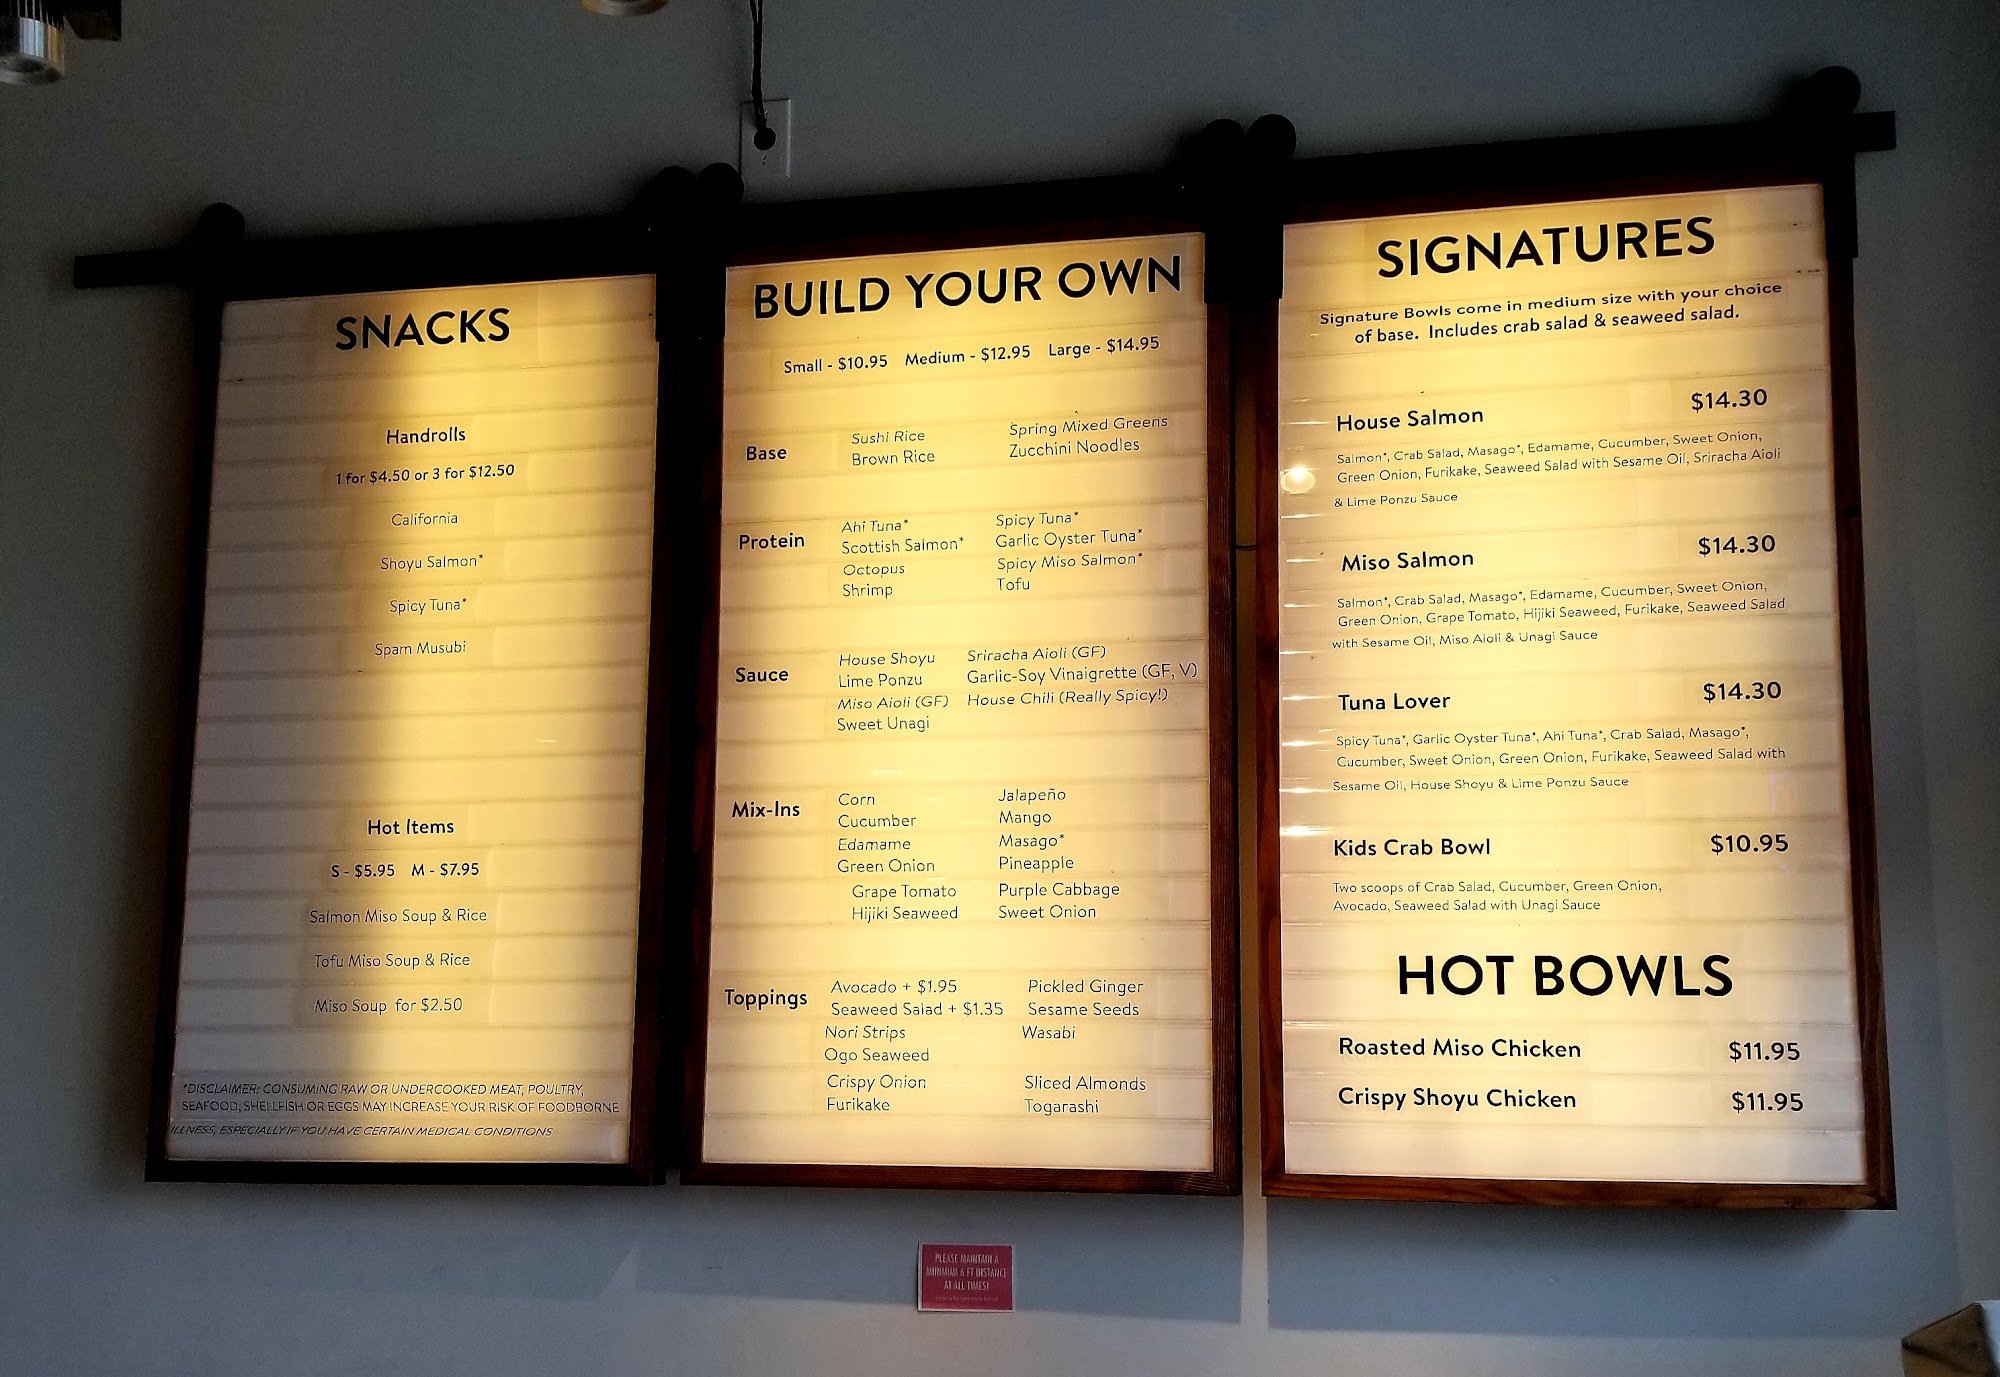 SNACKS
Handrolls
1 for $4.50 or 3 for $12.50
California
Shoyu Salmon*
Spicy Tuna*
Spam Musubi
Hot Items
S - $5.95 M - $7.95
Salmon Miso Soup & Rice
Tofu Miso Soup & Rice
Miso Soup for $2.50
*DISCLAIMER: CONSUMING RAW OR UNDERCOOKED MEAT, POULTRY,
SEAFOOD, SHELLFISH OR EGGS MAY INCREASE YOUR RISK OF FOODBORNE
ILLNESS, ESPECIALLY IF YOU HAVE CERTAIN MEDICAL CONDITIONS
BUILD YOUR OWN
Small - $10.95 Medium - $12.95 Large - $14.95
Base
Sushi Rice Spring Mixed Greens
Brown Rice Zucchini Noodles
Protein
Ahi Tuna* Spicy Tuna*
Scottish Salmon* Garlic Oyster Tuna*
Octopus Spicy Miso Salmon*
Shrimp Tofu
Sauce
House Shoyu Sriracha Aioli (GF)
Lime Ponzu Garlic-Soy Vinaigrette (GF, V)
Miso Aioli (GF) House Chili (Really Spicy!)
Sweet Unagi
Mix-Ins
Corn Jalapeño
Cucumber Mango
Edamame Masago*
Green Onion Pineapple
Grape Tomato Purple Cabbage
Hijiki Seaweed Sweet Onion
Toppings
Avocado + $1.95 Pickled Ginger
Seaweed Salad + $1.35 Sesame Seeds
Nori Strips Wasabi
Ogo Seaweed
Crispy Onion Sliced Almonds
Furikake Togarashi
SIGNATURES
Signature Bowls come in medium size with your choice
of base. Includes crab salad & seaweed salad.
House Salmon $14.30
Salmon*, Crab Salad, Masago*, Edamame, Cucumber, Sweet Onion,
Green Onion, Furikake, Seaweed Salad with Sesame Oil, Sriracha Aioli
& Lime Ponzu Sauce
Miso Salmon $14.30
Salmon*, Crab Salad, Masago*, Edamame, Cucumber, Sweet Onion,
Green Onion, Grape Tomato, Hijiki Seaweed, Furikake, Seaweed Salad
with Sesame Oil, Miso Aioli & Unagi Sauce
Tuna Lover $14.30
Spicy Tuna*, Garlic Oyster Tuna*, Ahi Tuna*, Crab Salad, Masago*,
Cucumber, Sweet Onion, Green Onion, Furikake, Seaweed Salad with
Sesame Oil, House Shoyu & Lime Ponzu Sauce
Kids Crab Bowl $10.95
Two scoops of Crab Salad, Cucumber, Green Onion,
Avocado, Seaweed Salad with Unagi Sauce
HOT BOWLS
Roasted Miso Chicken $11.95
Crispy Shoyu Chicken $11.95
PLEASE MAINTAIN A
MINIMUM 6 FT DISTANCE
AT ALL TIMES!